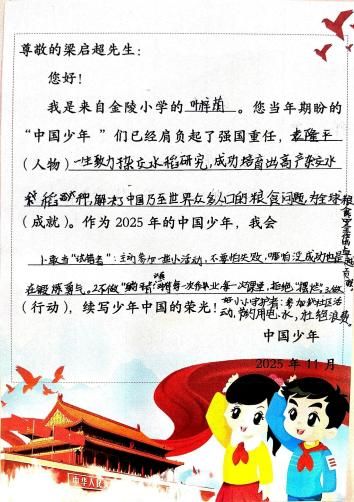 尊敬的梁启超先生：
您好！
我是来自金陵小学的叶梓茵。您当年期盼的
“中国少年”们已经肩负起了强国重任，袁隆平
（人物）一生致力杂交水稻研究，成功培育出高产杂交水
稻品种，解决了中国乃至世界众多人口的粮食问题，为全球
粮食安全作出卓越贡献。
（成就）。作为 2025 年的中国少年，我会
1.敢当“试错者”：主动参加一些小活动，不要怕失败，哪怕没成功也是
在锻炼勇气。2.不做“躺
每一次作业，每一次课堂，拒绝“摆烂”。3.做
好小小守护者：参加社区活
动，节约用电、水，杜绝浪费
（行动），续写少年中国的荣光！
中国少年
2025 年 11 月
中华人民